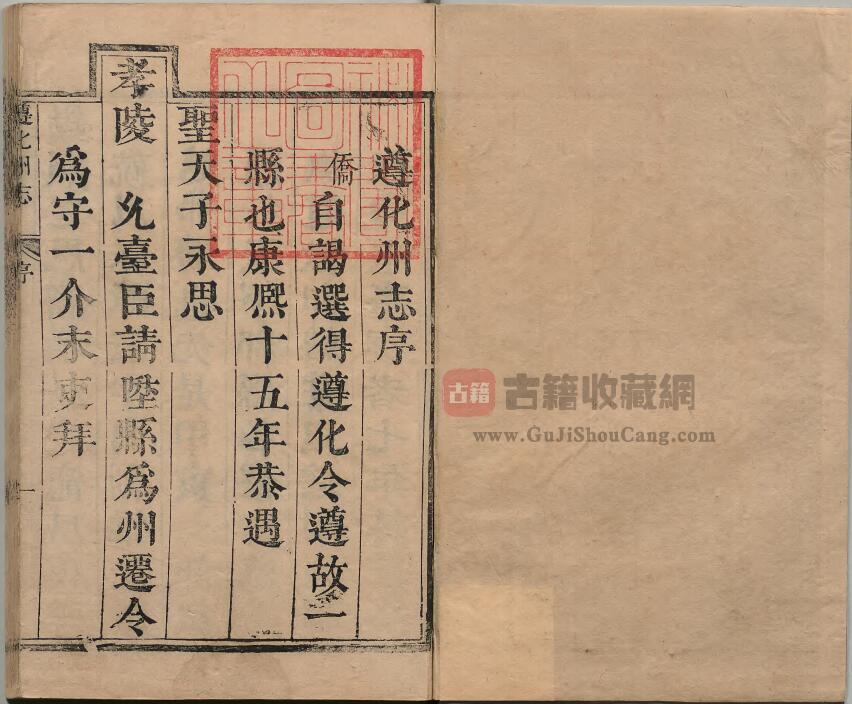 遵化州志序
僑自謁選得遵化令遵故一
縣也康熈十五年恭遇
聖天子永思
孝陵允臺臣請陞縣爲州遷令
爲守一介末吏拜
遵化州志
序
一
古籍
古籍收藏網
www.GuJiShouCang.com